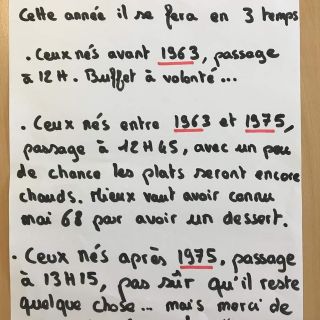 Cette année il se fera en 3 temps
. Ceux nés avant 1963, passage
à 12H. Buffet à volonté...
. Ceux nés entre 1963 et 1975,
passage à 12H45, avec un peu
de chance les plats seront encore
chauds. Mieux vaut avoir connu
mai 68 pour avoir un dessert.
. Ceux nés après 1975, passage
à 13H15, pas sûr qu'il reste
quelque chose... mais merci de